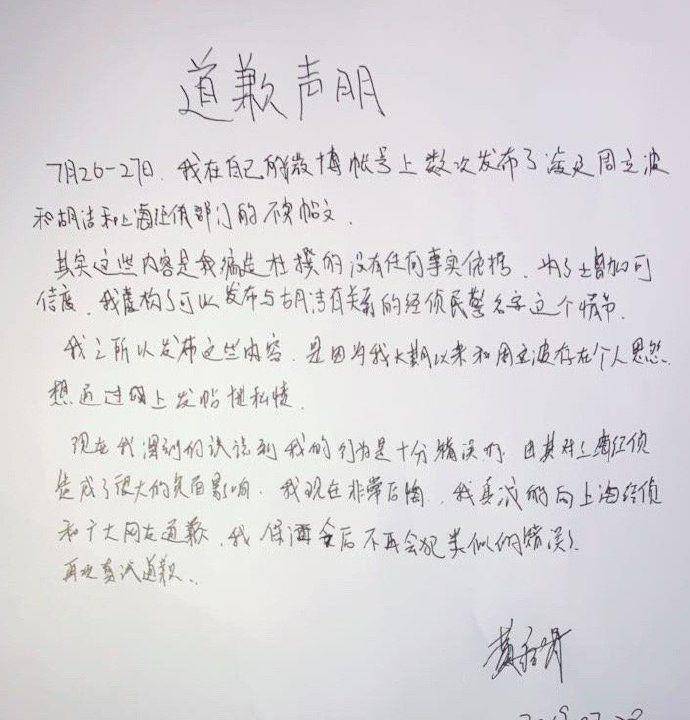 道歉声明
7月26-27日,我在自己的微博帐号上数次发布了涉及周立波
和胡洁和上海经侦部门的不实帖文.
其实这些内容是我编造杜撰的没有任何事实依据,为了增加可
信度,我虚构了可以发布与胡洁有关系的经侦民警名字这个情节.
我之所以发布这些内容,是因为我长期以来和周立波存在个人恩怨.
想通过网上发帖泄私愤.
现在我深刻的认识到我的行为是十分错误的,由其对上海经侦
造成了很大的负面影响.我现在非常后悔,我真诚的向上海经侦
和广大网友道歉,我保证今后不再会犯类似的错误.
再次真诚道歉.